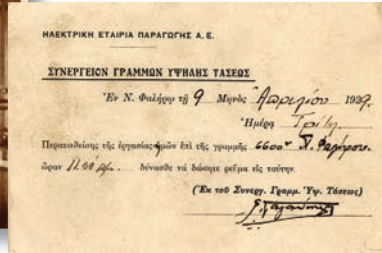 ΗΛΕΚΤΡΙΚΗ ΕΤΑΙΡΙΑ ΠΑΡΑΓΩΓΗΣ Α. Ε.
ΣΥΝΕΡΓΕΙΟΝ ΓΡΑΜΜΩΝ ΥΨΗΛΗΣ ΤΑΣΕΩΣ
Ἐν Ν. Φαλήρῳ τῇ 9 Μηνὸς Ἀπριλίου 1929.
Ἡμέρᾳ Τρίτῃ.
Περατωθείσης τῆς ἐργασίας ἡμῶν ἐπὶ τῆς γραμμῆς 6600ᵛ Π. Φαλήρου.
ὥραν 11.50 δύνασθε νὰ δώσητε ρεῦμα εἰς ταύτην.
(Ἐκ τοῦ Συνεργ. Γραμμ. Ὑψ. Τάσεως)